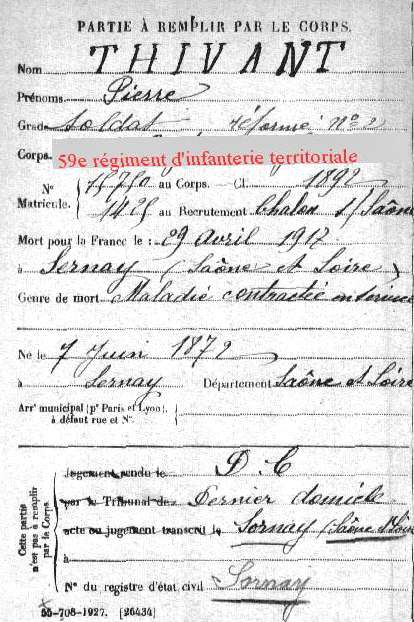 PARTIE À REMPLIR PAR LE CORPS.
Nom THIVANT
Prénoms Pierre
Grade Soldat réformé N° 2
Corps 59e régiment d'infanterie territoriale
N° Matricule. { 15750 au Corps. — Cl. 1892
1425 au Recrutement Chalon s/ Saône
Mort pour la France le : 29 Avril 1917
à Sernay (Saône et Loire)
Genre de mort Maladie contractée en service
Né le 7 Juin 1872
à Sernay Département Saône et Loire
Arr' municipal (p' Paris et Lyon),
à défaut rue et N°.
Cette partie n'est pas à remplir par le Corps.
Jugement rendu le D C
par le Tribunal de Dernier domicile
acte ou jugement transcrit le Sornay (Saône et Loire
à
N° du registre d'état civil Sornay
55-708-1927. [26434]